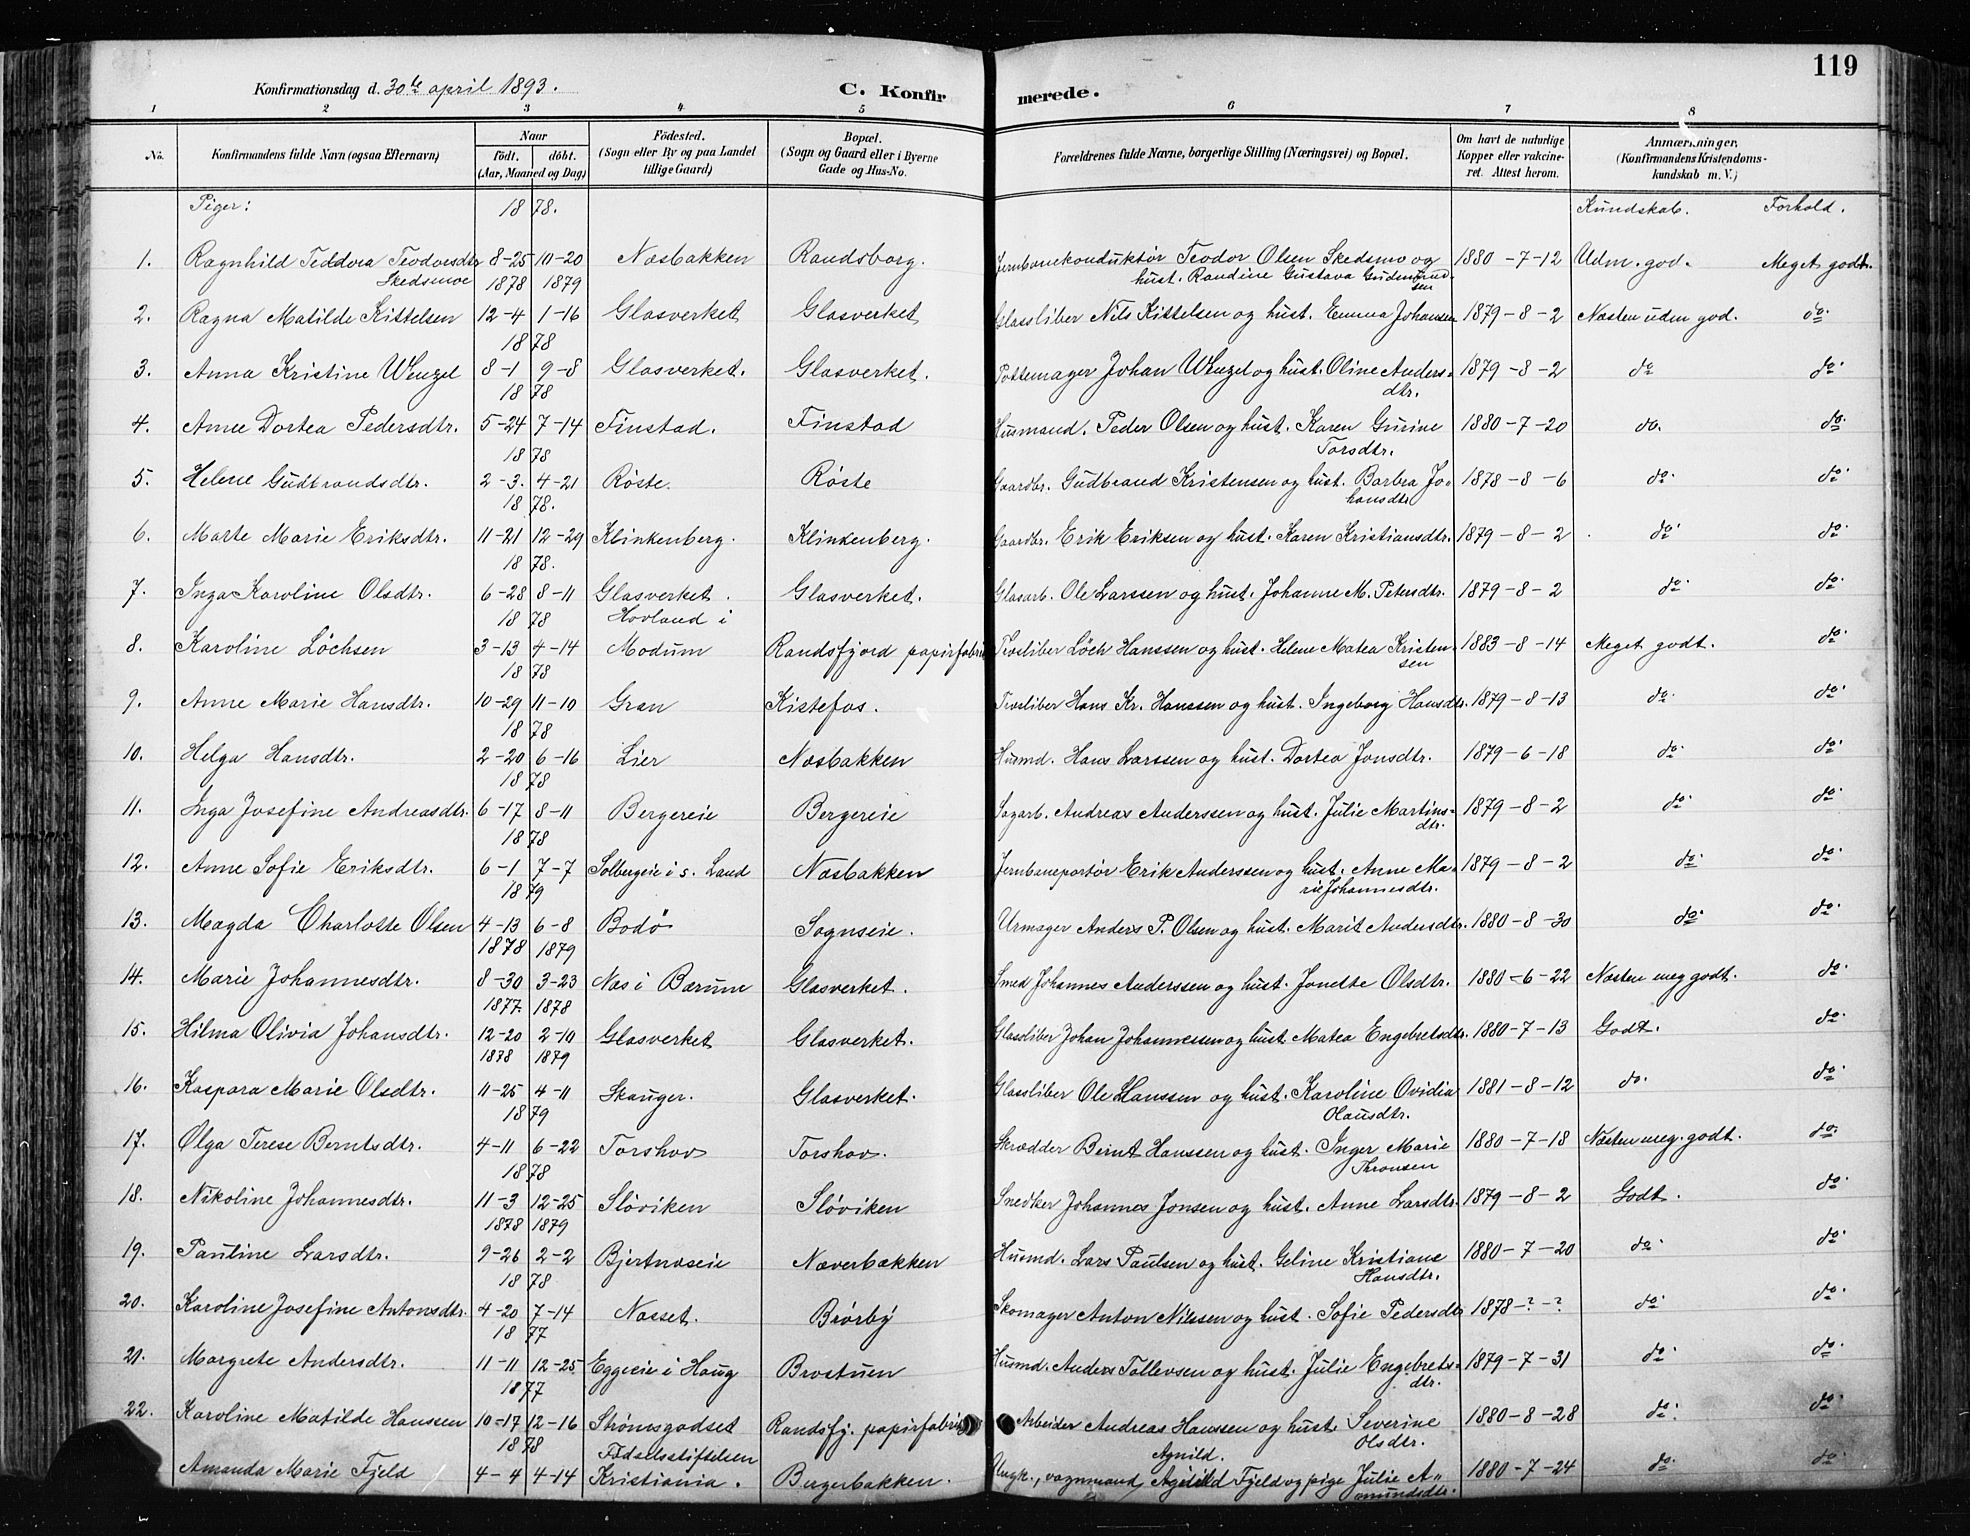 119
Konfirmationsdag d. 30te april 1893. C. Konfirmerede.
1 2 3 4 5 6 7 8
No. Konfirmandens fulde Navn (ogsaa Efternavn) Naar født. døbt. (Aar, Maaned og Dag) Fødested. (Sogn eller By og paa Landet tillige Gaard) Bopæl. (Sogn og Gaard eller i Byerne Gade og Hus-No. Forældrenes fulde Navne, borgerlige Stilling (Næringsvei) og Bopæl. Om havt de naturlige Kopper eller vakcineret. Attest herom. Anmærkninger, (Konfirmandens Kristendomskundskab m. V.)
Piger: 1878. Kundskab. Forhold.
1. Ragnhild Teodora Teodorsdtr 8-25 10-20 Næsbakken Randsborg. Jernbanekonduktør Teodor Olsen Skedsmo og 1880-7-12 Udm. god. Meget godt.
Skedsmoe 1878 1879 hust. Randine Gustava Gudmundsen
2. Ragna Matilde Kittelsen 12-4 1-16 Glasverket Glasverket Glassliber Nils Kittelsen og hust. Emma Johansen 1879-8-2 Næsten udm god. do
1878
3. Anna Kristine Wenzel 8-1 9-8 Glasverket. Glasverket. Pottemager Johan Wenzel og hust. Oline Anders- 1879-8-2 do do
1878 dtr.
4. Anne Dortea Pedersdtr. 5-24 7-14 Finstad. Finstad Husmand. Peder Olsen og hust. Karen Gurine 1880-7-20 do. do
1878 Torsdtr.
5. Helene Gudbrandsdtr. 2-3. 4-21 Røste. Røste Gaardbr. Gudbrand Kristensen og hust. Barbra Jo- 1878-8-6 do do
1878. hansdtr
6. Marte Marie Eriksdtr. 11-21 12-29 Klinkenberg. Klinkenberg. Gaardbr. Erik Eriksen og hust. Karen Kristiansdtr. 1879-8-2 do do
1878.
7. Inga Karoline Olsdtr. 6-28 8-11 Glasverket. Glasverket. Glasarb. Ole Larssen og hust. Johanne M. Petersdtr. 1879-8-2 do do
1878 Hovland i
8. Karoline Løchsen 3-13 4-14 Modum Randsfjord papirfabrik Træsliber Løch Hanssen og hust. Helene Matea Kristen- 1883-8-14 Meget godt. do
1878 sen
9. Anne Marie Hansdtr. 10-29 11-10 Gran Kistefos. Træsliber Hans Kr. Hanssen og hust. Ingeborg Hansdtr. 1879-8-13 do do
1878
10. Helga Hansdtr. 2-20 6-16 Lier Næsbakken Husmd. Hans Larssen og hust. Dortea Jonsdtr. 1879-6-18 do do
1878
11. Inga Josefine Andreasdtr. 6-17 8-11 Bergereie Bergereie Sagarb. Andreas Anderssen og hust. Julie Martins- 1879-8-2 do do
1878 dtr.
12. Anne Sofie Eriksdtr. 6-1 7-7 Solbergeie i s. Land Næsbakken Jernbaneportør Erik Anderssen og hust. Anne Ma- 1879-8-2 do do
1879 rie Johannesdtr.
13. Magda Charlotte Olsen 4-13 6-8 Bodø Sognseie. Urmager Anders P. Olsen og hust. Marit Andersdtr. 1880-8-30 do do
1878 1879
14. Marie Johannesdtr. 8-30 3-23 Næs i Bærum Glasverket. Smed Johannes Anderssen og hust. Jonette Olsdtr. 1880-6-22 Næsten meg godt. do
1877. 1878
15. Hilma Olivia Johansdtr. 12-20 2-10 Glasverket Glasverket. Glassliber Johan Johannessen og hust Matea Engebretsdtr. 1880-7-13 Godt. do
1878 1879
16. Kaspara Marie Olsdtr. 11-25 4-11 Skauger. Glasverket. Glassliber Ole Hanssen og hust. Karoline Ovidia 1881-8-12 do. do
1879 Olausdtr.
17. Olga Terese Berntsdtr. 4-11 6-22 Torshov Torshov. Skrædder Bernt Hanssen og hust. Inger Marie 1880-7-18 Næsten meg. godt. do
1878 Thronsen
18. Nikoline Johannesdtr. 11-3 12-25 Sløviken Sløviken Snedker Johannes Jonsen og hust. Anne Larsdtr. 1879-8-2 Godt. do
1878 1879
19. Pauline Larsdtr. 9-26 2-2 Bjertnæseie Næverbakken Husmd. Lars Paulsen og hust. Geline Kristiane 1880-7-20 do do
1878 Hansdtr.
20. Karoline Josefine Antonsdtr. 4-20 7-14 Næsset. Brørby Skomager Anton Nilssen og hust. Sofie Pedersdtr 1878-?-? do do
1877
21. Margrete Andersdtr. 11-11 12-25 Eggeeie i Haug Brostuen Husmd. Anders Tollevsen og hust. Julie Engebrets- 1879-7-31 do do
1877 dtr.
22. Karoline Matilde Hanssen 10-17 12-16 Strømsgodset Randsfj. papirfabrik Arbeider Andreas Hanssen og hust. Severine 1880-8-28 do do
1878 Fødselsstiftelsen Agnild. Olsdtr.
Amanda Marie Fjeld 4-4 4-14 Kristiania. Bergerbakken. Ungk., vognmand, Fjeld og pige Julie A- 1880-7-24 do do
mundsdtr.